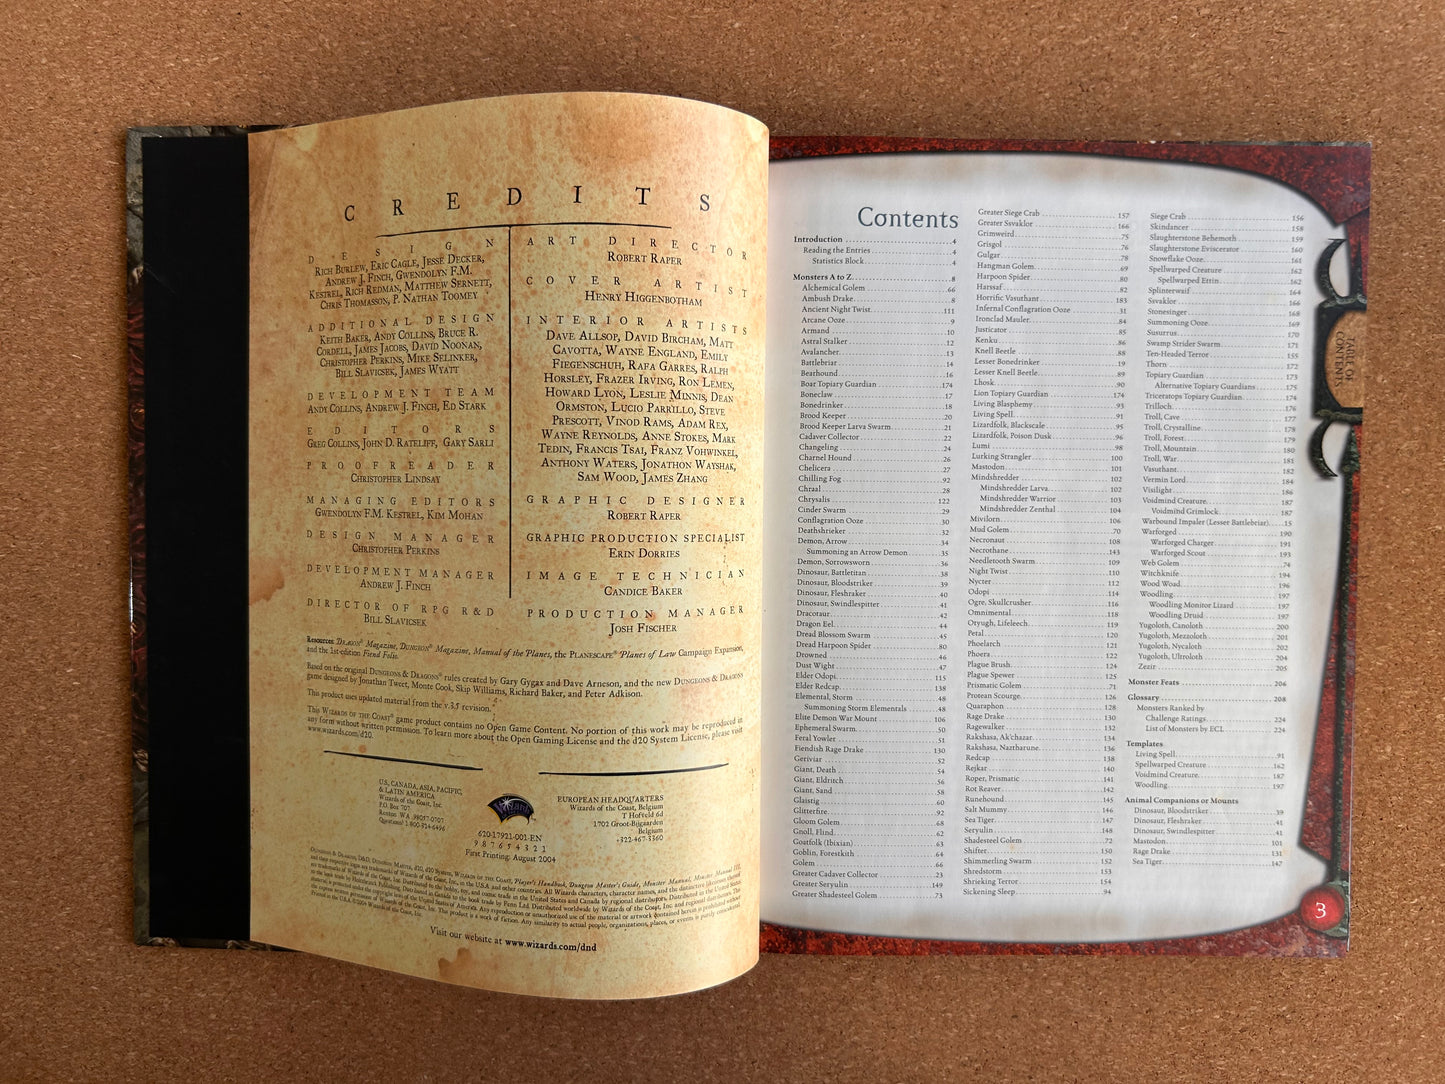 CREDITS
DESIGN
RICH BURLEW, ERIC CAGLE, JESSE DECKER,
ANDREW J. FINCH, GWENDOLYN F.M.
KESTREL, RICH REDMAN, MATTHEW SERNETT,
CHRIS THOMASSON, P. NATHAN TOOMEY
ADDITIONAL DESIGN
KEITH BAKER, ANDY COLLINS, BRUCE R.
CORDELL, JAMES JACOBS, DAVID NOONAN,
CHRISTOPHER PERKINS, MIKE SELINKER,
BILL SLAVICSEK, JAMES WYATT
DEVELOPMENT TEAM
ANDY COLLINS, ANDREW J. FINCH, ED STARK
EDITORS
GREG COLLINS, JOHN D. RATELIFF, GARY SARLI
PROOFREADER
CHRISTOPHER LINDSAY
MANAGING EDITORS
GWENDOLYN F.M. KESTREL, KIM MOHAN
DESIGN MANAGER
CHRISTOPHER PERKINS
DEVELOPMENT MANAGER
ANDREW J. FINCH
DIRECTOR OF RPG R&D
BILL SLAVICSEK
ART DIRECTOR
ROBERT RAPER
COVER ARTIST
HENRY HIGGENBOTHAM
INTERIOR ARTISTS
DAVE ALLSOP, DAVID BIRCHAM, MATT
CAVOTTA, WAYNE ENGLAND, EMILY
FIEGENSCHUH, RAFA GARRES, RALPH
HORSLEY, FRAZER IRVING, RON LEMEN,
HOWARD LYON, LESLIE MINNIS, DEAN
ORMSTON, LUCIO PARRILLO, STEVE
PRESCOTT, VINOD RAMS, ADAM REX,
WAYNE REYNOLDS, ANNE STOKES, MARK
TEDIN, FRANCIS TSAI, FRANZ VOHWINKEL,
ANTHONY WATERS, JONATHON WAYSHAK,
SAM WOOD, JAMES ZHANG
GRAPHIC DESIGNER
ROBERT RAPER
GRAPHIC PRODUCTION SPECIALIST
ERIN DORRIES
IMAGE TECHNICIAN
CANDICE BAKER
PRODUCTION MANAGER
JOSH FISCHER
Resources: DRAGON® Magazine, DUNGEON® Magazine, Manual of the Planes, the PLANESCAPE® Planes of Law Campaign Expansion,
and the 1st-edition Fiend Folio.
Based on the original DUNGEONS & DRAGONS® rules created by Gary Gygax and Dave Arneson, and the new DUNGEONS & DRAGONS
game designed by Jonathan Tweet, Monte Cook, Skip Williams, Richard Baker, and Peter Adkison.
This product uses updated material from the v.3.5 revision.
This WIZARDS OF THE COAST® game product contains no Open Game Content. No portion of this work may be reproduced in
any form without written permission. To learn more about the Open Gaming License and the d20 System License, please visit
www.wizards.com/d20.
U.S., CANADA, ASIA, PACIFIC,
& LATIN AMERICA
Wizards of the Coast, Inc.
P.O. Box 707
Renton WA 98057-0707
Questions? 1-800-324-6496
Wizards
620-17921-001-EN
9 8 7 6 5 4 3 2 1
First Printing: August 2004
EUROPEAN HEADQUARTERS
Wizards of the Coast, Belgium
T Hofveld 6d
1702 Groot-Bijgaarden
Belgium
+322-467-3360
DUNGEONS & DRAGONS, D&D, DUNGEON MASTER, d20, d20 System, WIZARDS OF THE COAST, Player's Handbook, Dungeon Master's Guide, Monster Manual, Monster Manual III,
and their respective logos are trademarks of Wizards of the Coast, Inc., in the U.S.A. and other countries. All Wizards characters, character names, and the distinctive likenesses thereof
are trademarks of Wizards of the Coast, Inc. Distributed to the hobby, toy, and comic trade in the United States and Canada by regional distributors. Distributed in the United States
to the book trade by Holtzbrinck Publishing. Distributed in Canada to the book trade by Fenn Ltd. Distributed worldwide by Wizards of the Coast, Inc. and regional distributors. This
material is protected under the copyright laws of the United States of America. Any reproduction or unauthorized use of the material or artwork contained herein is prohibited without
the express written permission of Wizards of the Coast, Inc. This product is a work of fiction. Any similarity to actual people, organizations, places, or events is purely coincidental.
Printed in the U.S.A. ©2004 Wizards of the Coast, Inc.
Visit our website at www.wizards.com/dnd
Contents
Introduction 4
Reading the Entries 4
Statistics Block 4
Monsters A to Z 8
Alchemical Golem 66
Ambush Drake 8
Ancient Night Twist 111
Arcane Ooze 9
Armand 10
Astral Stalker 12
Avalancher 13
Battlebriar 14
Bearhound 16
Boar Topiary Guardian 174
Boneclaw 17
Bonedrinker 18
Brood Keeper 20
Brood Keeper Larva Swarm 21
Cadaver Collector 22
Changeling 24
Charnel Hound 26
Chelicera 27
Chilling Fog 92
Chraal 28
Chrysalis 122
Cinder Swarm 29
Conflagration Ooze 30
Deathshrieker 32
Demon, Arrow 34
Summoning an Arrow Demon 35
Demon, Sorrowsworn 36
Dinosaur, Battletitan 38
Dinosaur, Bloodstriker 39
Dinosaur, Fleshraker 40
Dinosaur, Swindlespitter 41
Dracotaur 42
Dragon Eel 44
Dread Blossom Swarm 45
Dread Harpoon Spider 80
Drowned 46
Dust Wight 47
Elder Odopi 115
Elder Redcap 138
Elemental, Storm 48
Summoning Storm Elementals 48
Elite Demon War Mount 106
Ephemeral Swarm 50
Feral Yowler 51
Fiendish Rage Drake 130
Geriviar 52
Giant, Death 54
Giant, Eldritch 56
Giant, Sand 58
Glaistig 60
Glitterfire 92
Gloom Golem 68
Gnoll, Flind 62
Goatfolk (Ibixian) 63
Goblin, Forestkith 64
Golem 66
Greater Cadaver Collector 23
Greater Seryulin 149
Greater Shadesteel Golem 73
Greater Siege Crab 157
Greater Ssvaklor 166
Grimweird 75
Grisgol 76
Gulgar 78
Hangman Golem 69
Harpoon Spider 80
Harssaf 82
Horrific Vasuthant 183
Infernal Conflagration Ooze 31
Ironclad Mauler 84
Justicator 85
Kenku 86
Knell Beetle 88
Lesser Bonedrinker 19
Lesser Knell Beetle 89
Lhosk 90
Lion Topiary Guardian 174
Living Blasphemy 93
Living Spell 91
Lizardfolk, Blackscale 95
Lizardfolk, Poison Dusk 96
Lumi 98
Lurking Strangler 100
Mastodon 101
Mindshredder 102
Mindshredder Larva 102
Mindshredder Warrior 103
Mindshredder Zenthal 104
Mivilorn 106
Mud Golem 70
Necronaut 108
Necrothane 143
Needletooth Swarm 109
Night Twist 110
Nycter 112
Odopi 114
Ogre, Skullcrusher 116
Omnimental 118
Otyugh, Lifeleech 119
Petal 120
Phoelarch 121
Phoera 122
Plague Brush 124
Plague Spewer 125
Prismatic Golem 71
Protean Scourge 126
Quaraphon 128
Rage Drake 130
Ragewalker 132
Rakshasa, Ak'chazar 134
Rakshasa, Naztharune 136
Redcap 138
Rejkar 140
Roper, Prismatic 141
Rot Reaver 142
Runehound 145
Salt Mummy 146
Sea Tiger 147
Seryulin 148
Shadesteel Golem 72
Shifter 150
Shimmerling Swarm 152
Shredstorm 153
Shrieking Terror 154
Sickening Sleep 94
Siege Crab 156
Skindancer 158
Slaughterstone Behemoth 159
Slaughterstone Eviscerator 160
Snowflake Ooze 161
Spellwarped Creature 162
Spellwarped Ettin 162
Splinterwaif 164
Ssvaklor 166
Stonesinger 168
Summoning Ooze 169
Susurrus 170
Swamp Strider Swarm 171
Ten-Headed Terror 155
Thorn 172
Topiary Guardian 173
Alternative Topiary Guardians 175
Triceratops Topiary Guardian 174
Trilloch 176
Troll, Cave 177
Troll, Crystalline 178
Troll, Forest 179
Troll, Mountain 180
Troll, War 181
Vasuthant 182
Vermin Lord 184
Visilight 186
Voidmind Creature 187
Voidmind Grimlock 187
Warbound Impaler (Lesser Battlebriar) 15
Warforged 190
Warforged Charger 191
Warforged Scout 193
Web Golem 74
Witchknife 194
Wood Woad 196
Woodling 197
Woodling Monitor Lizard 197
Woodling Druid 197
Yugoloth, Canoloth 200
Yugoloth, Mezzoloth 201
Yugoloth, Nycaloth 202
Yugoloth, Ultroloth 204
Zezir 205
Monster Feats 206
Glossary 208
Monsters Ranked by
Challenge Ratings 224
List of Monsters by ECL 224
Templates
Living Spell 91
Spellwarped Creature 162
Voidmind Creature 187
Woodling 197
Animal Companions or Mounts
Dinosaur, Bloodstriker 39
Dinosaur, Fleshraker 41
Dinosaur, Swindlespitter 41
Mastodon 101
Rage Drake 131
Sea Tiger 147
TABLE OF
CONTENTS
3